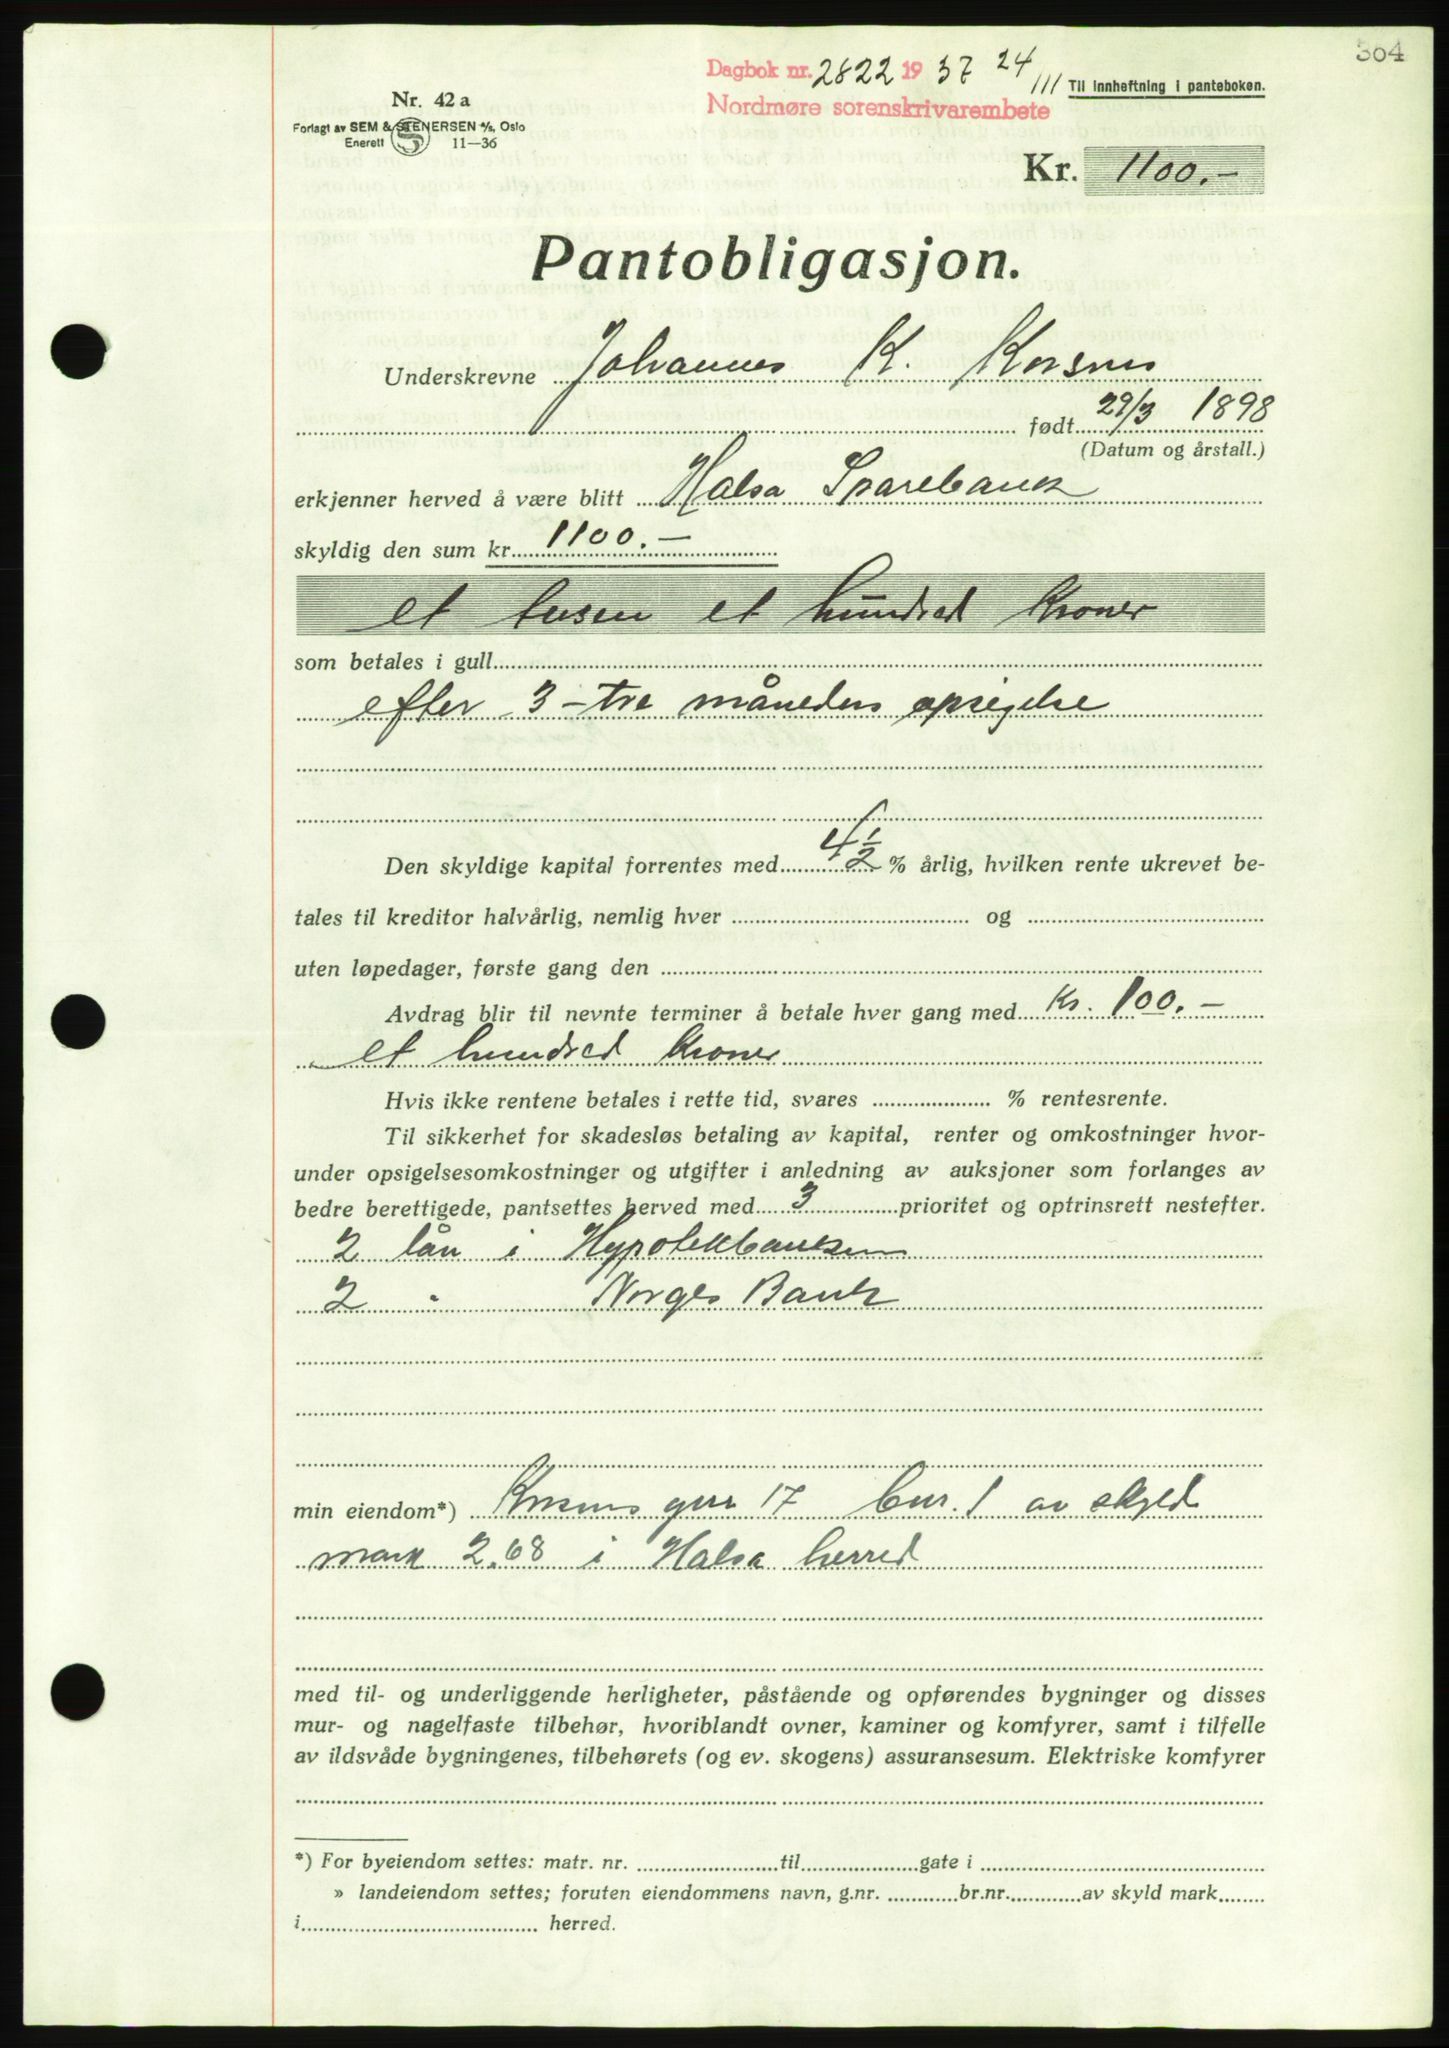 304
Dagbok nr. 2822 1937 24/11
Til innheftning i panteboken.
Nordmøre sorenskrivarembete
Nr. 42 a
Forlagt av SEM & STENERSEN A/S, Oslo
Enerett 11—36
Kr. 1100.-
Pantobligasjon.
Underskrevne Johannes K. Korsnes
født 29/3 1898
(Datum og årstall.)
erkjenner herved å være blitt Halsa Sparebank
skyldig den sum kr. 1100.-
et tusen et hundred kroner
som betales i gull
efter 3 - tre måneders opsigelse
Den skyldige kapital forrentes med 4 1/2 % årlig, hvilken rente ukrevet be-
tales til kreditor halvårlig, nemlig hver og
uten løpedager, første gang den
Avdrag blir til nevnte terminer å betale hver gang med Kr. 100.-
et hundred kroner
Hvis ikke rentene betales i rette tid, svares % rentesrente.
Til sikkerhet for skadesløs betaling av kapital, renter og omkostninger hvor-
under opsigelsesomkostninger og utgifter i anledning av auksjoner som forlanges av
bedre berettigede, pantsettes herved med 3 prioritet og optrinsrett nestefter.
2 lån i Hypotekbanken
2 " Norges Bank
min eiendom*) Korsnes gnr 17 bnr. 1 av skyld
mark 2.68 i Halsa herred
med til- og underliggende herligheter, påstående og opførendes bygninger og disses
mur- og nagelfaste tilbehør, hvoriblandt ovner, kaminer og komfyrer, samt i tilfelle
av ildsvåde bygningenes, tilbehørets (og ev. skogens) assuransesum. Elektriske komfyrer
*) For byeiendom settes: matr. nr. til gate i
» landeiendom settes; foruten eiendommens navn, g.nr. br.nr. av skyld mark
i herred.